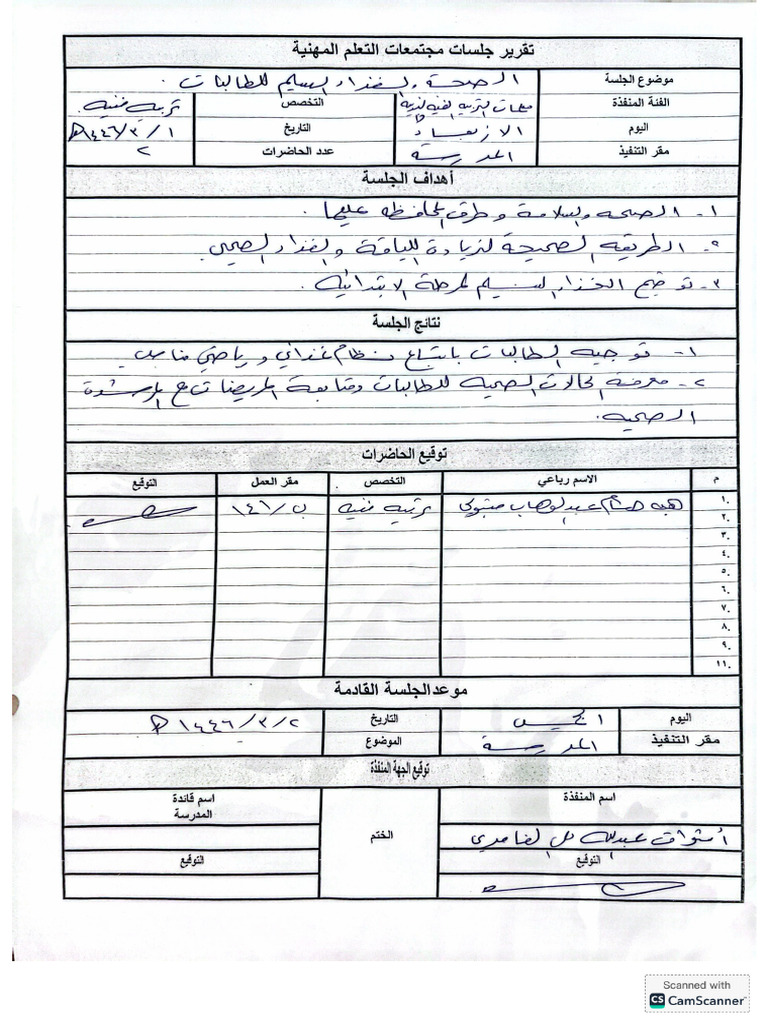 تقرير جلسات مجتمعات التعلم المهنية
موضوع الجلسة الصحة والغذاء السليم للطالبات .
الفئة المنفذة معلمات التربية الفنية التخصص تربيه فنيه
اليوم الاربعاء التاريخ ١ / ٣ / ١٤٤٦ هـ
مقر التنفيذ المدرسة عدد الحاضرات ٢
أهداف الجلسة
١- الصحه والسلامة وطرق المحافظه عليها .
٢- الطريقه الصحيحة لزيادة اللياقة والغذاء الصحي.
٣- توضيح الغذاء السليم لمرحلة الابتدائيه .
نتائج الجلسة
١- توجيه الطالبات باتباع نظام غذائي ورياضي مناسب.
٢- معرفة الحالات الصحيه للطالبات ومتابعة المريضات مع المرشدة
الصحيه .
توقيع الحاضرات
م الاسم رباعي التخصص مقر العمل التوقيع
١. هبه عبدالوهاب تربيه فنيه ب/١٤٦
٢.
٣.
٤.
٥.
٦.
٧.
٨.
٩.
١٠.
١١.
موعد الجلسة القادمة
اليوم الخميس التاريخ ٢ / ٣ / ١٤٤٦ هـ
مقر التنفيذ المدرسة الموضوع
توقيع الجهة المنفذة
اسم المنفذة الختم اسم قائدة
المدرسة
أشواق عبدالله الغامدي
التوقيع التوقيع
Scanned with
CS CamScanner